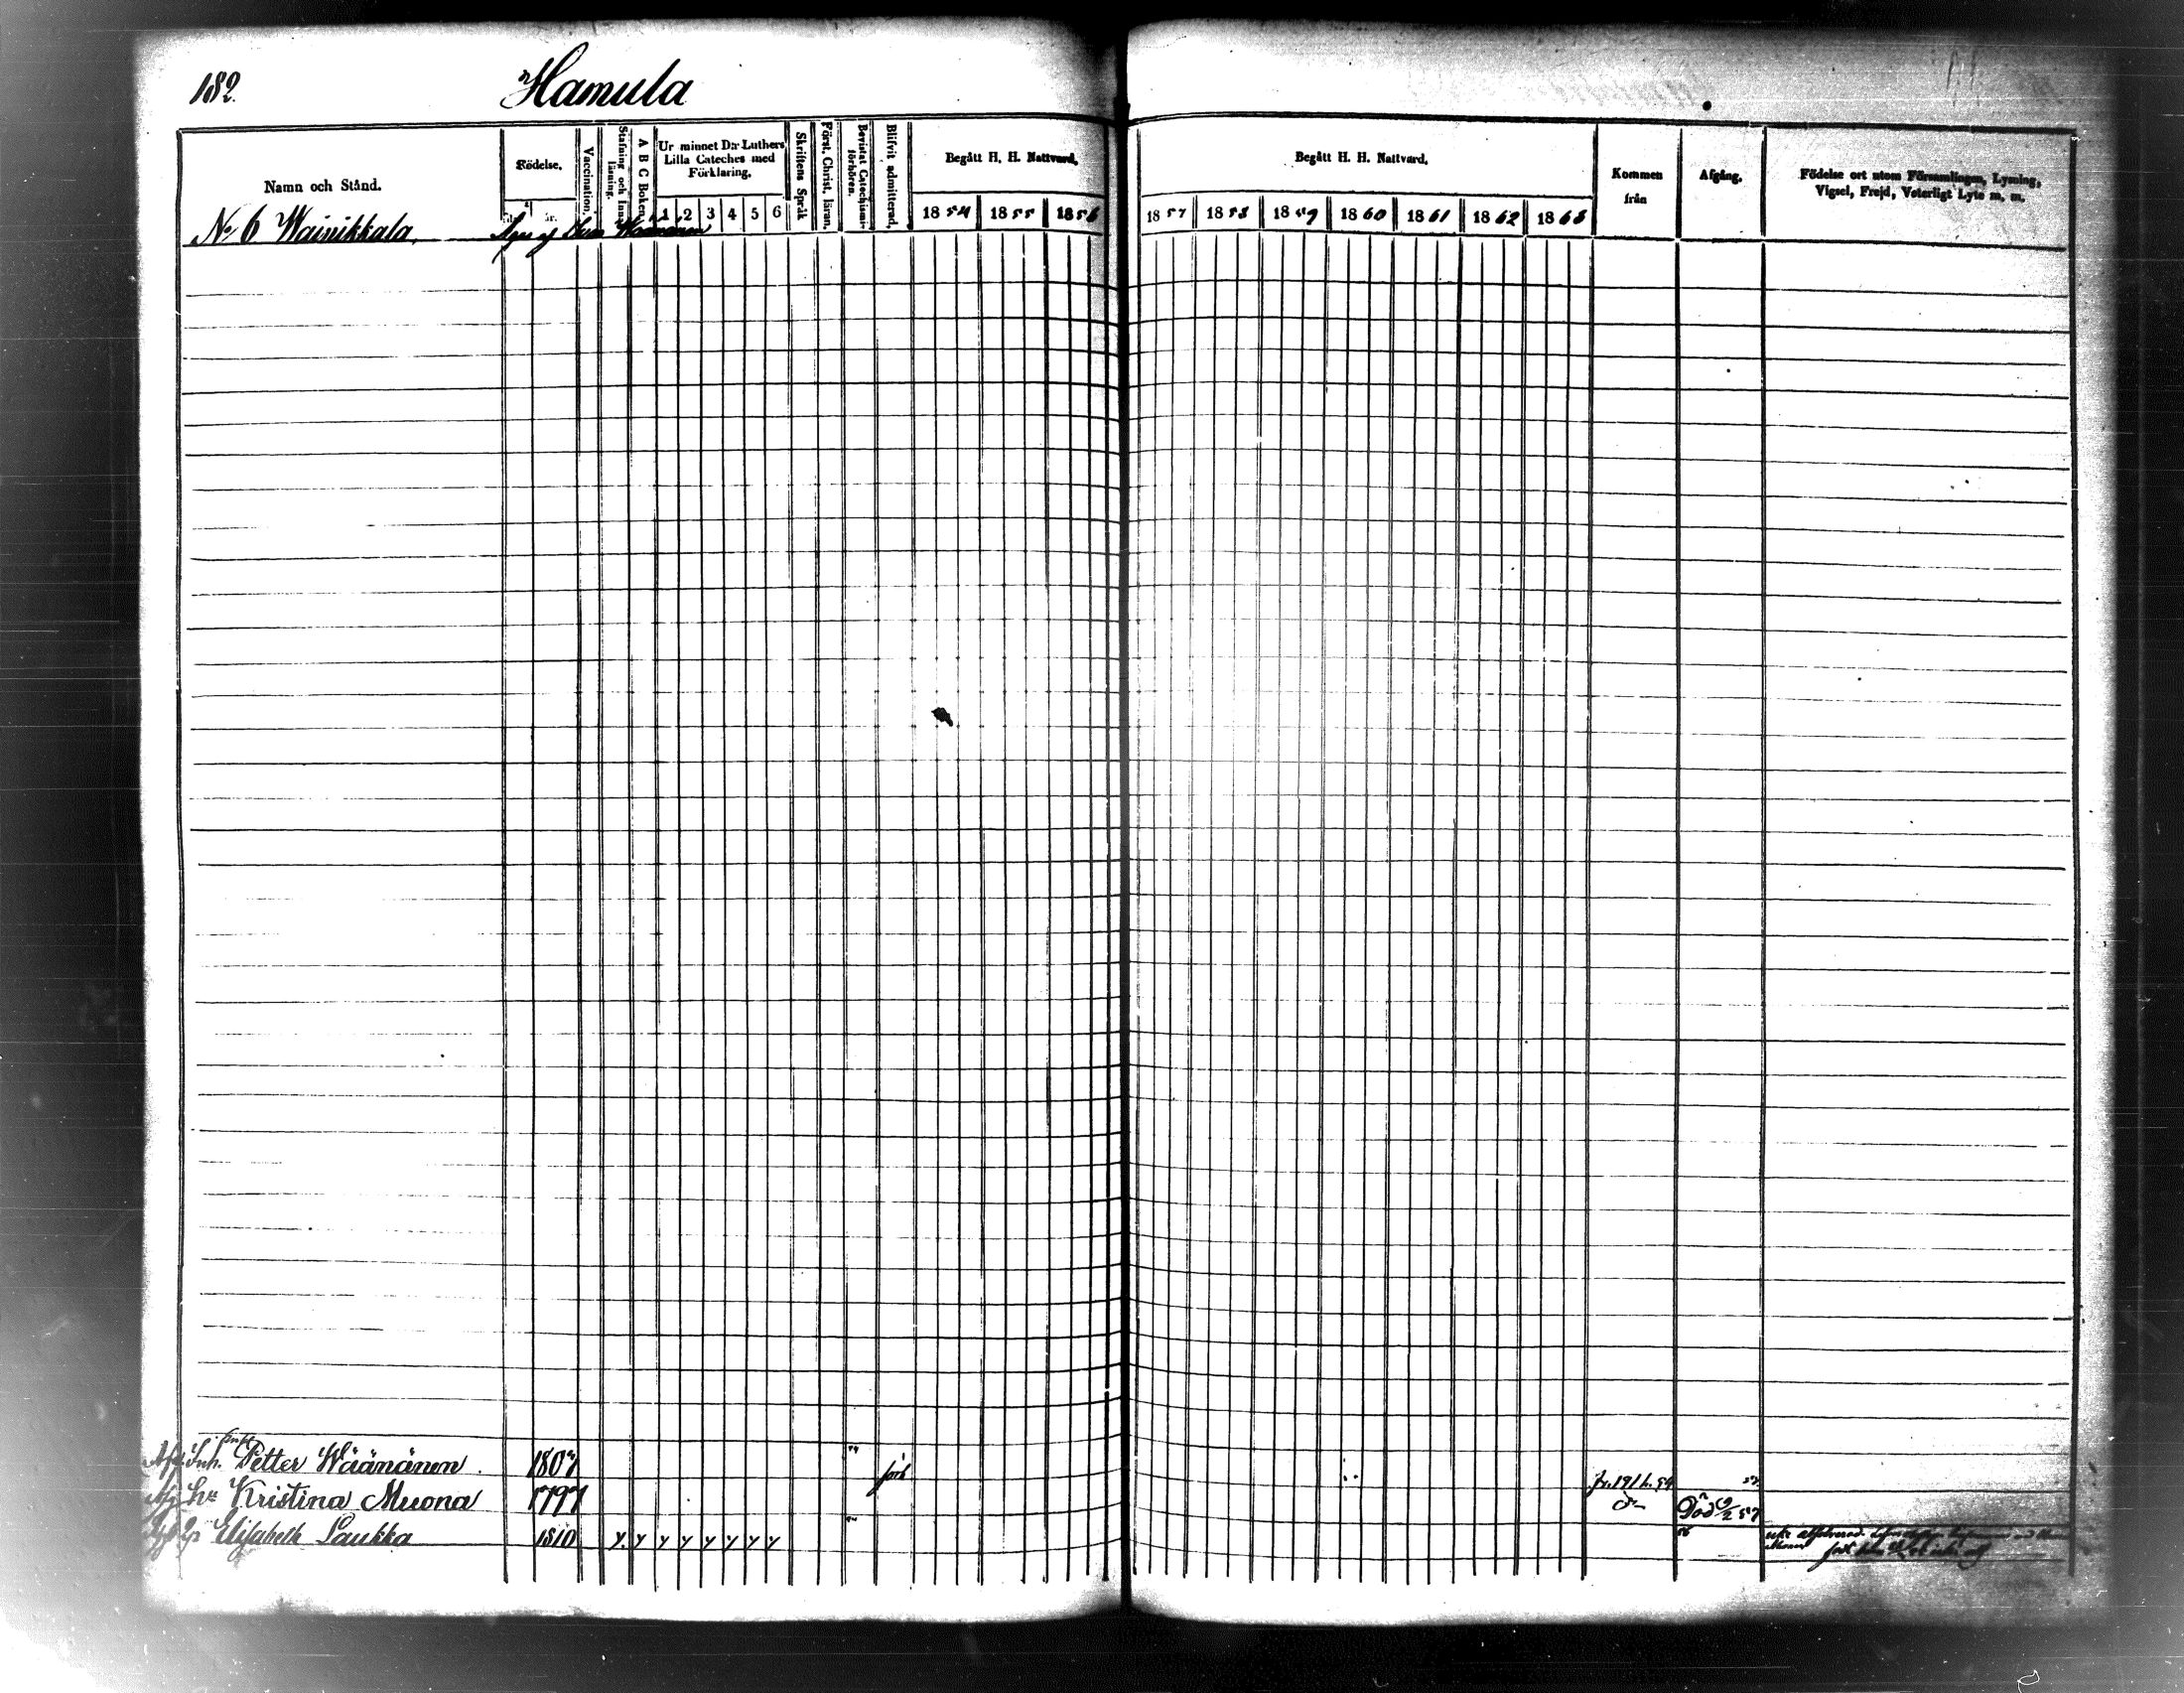 182.
Hamula
Namn och Stånd.
Födelse.
år.
Vaccination.
Stafning och Innanläsning.
A B C Boken.
Ur minnet D:r Luthers
Lilla Cateches med
Förklaring.
1 2 3 4 5 6
Skriftens Språk
Först. Christ. läran.
Bevistat Catechismiförhören.
Blifvit admitterad.
Begått H. H. Nattvard.
1854 1855 1856
Begått H. H. Nattvard.
1857 1858 1859 1860 1861 1862 1863
Kommen
från
Afgång.
Födelse ort utom Församlingen, Lysning,
Vigsel, Frejd, Veterligt Lyte m. m.
No 6 Wainikkala. Wäänänen
Inh. Petter Wäänänen 1807
Hu Kristina Muona 1797 Död 9/2 57
Elisabeth Laukka 1810 y y y y y y y y